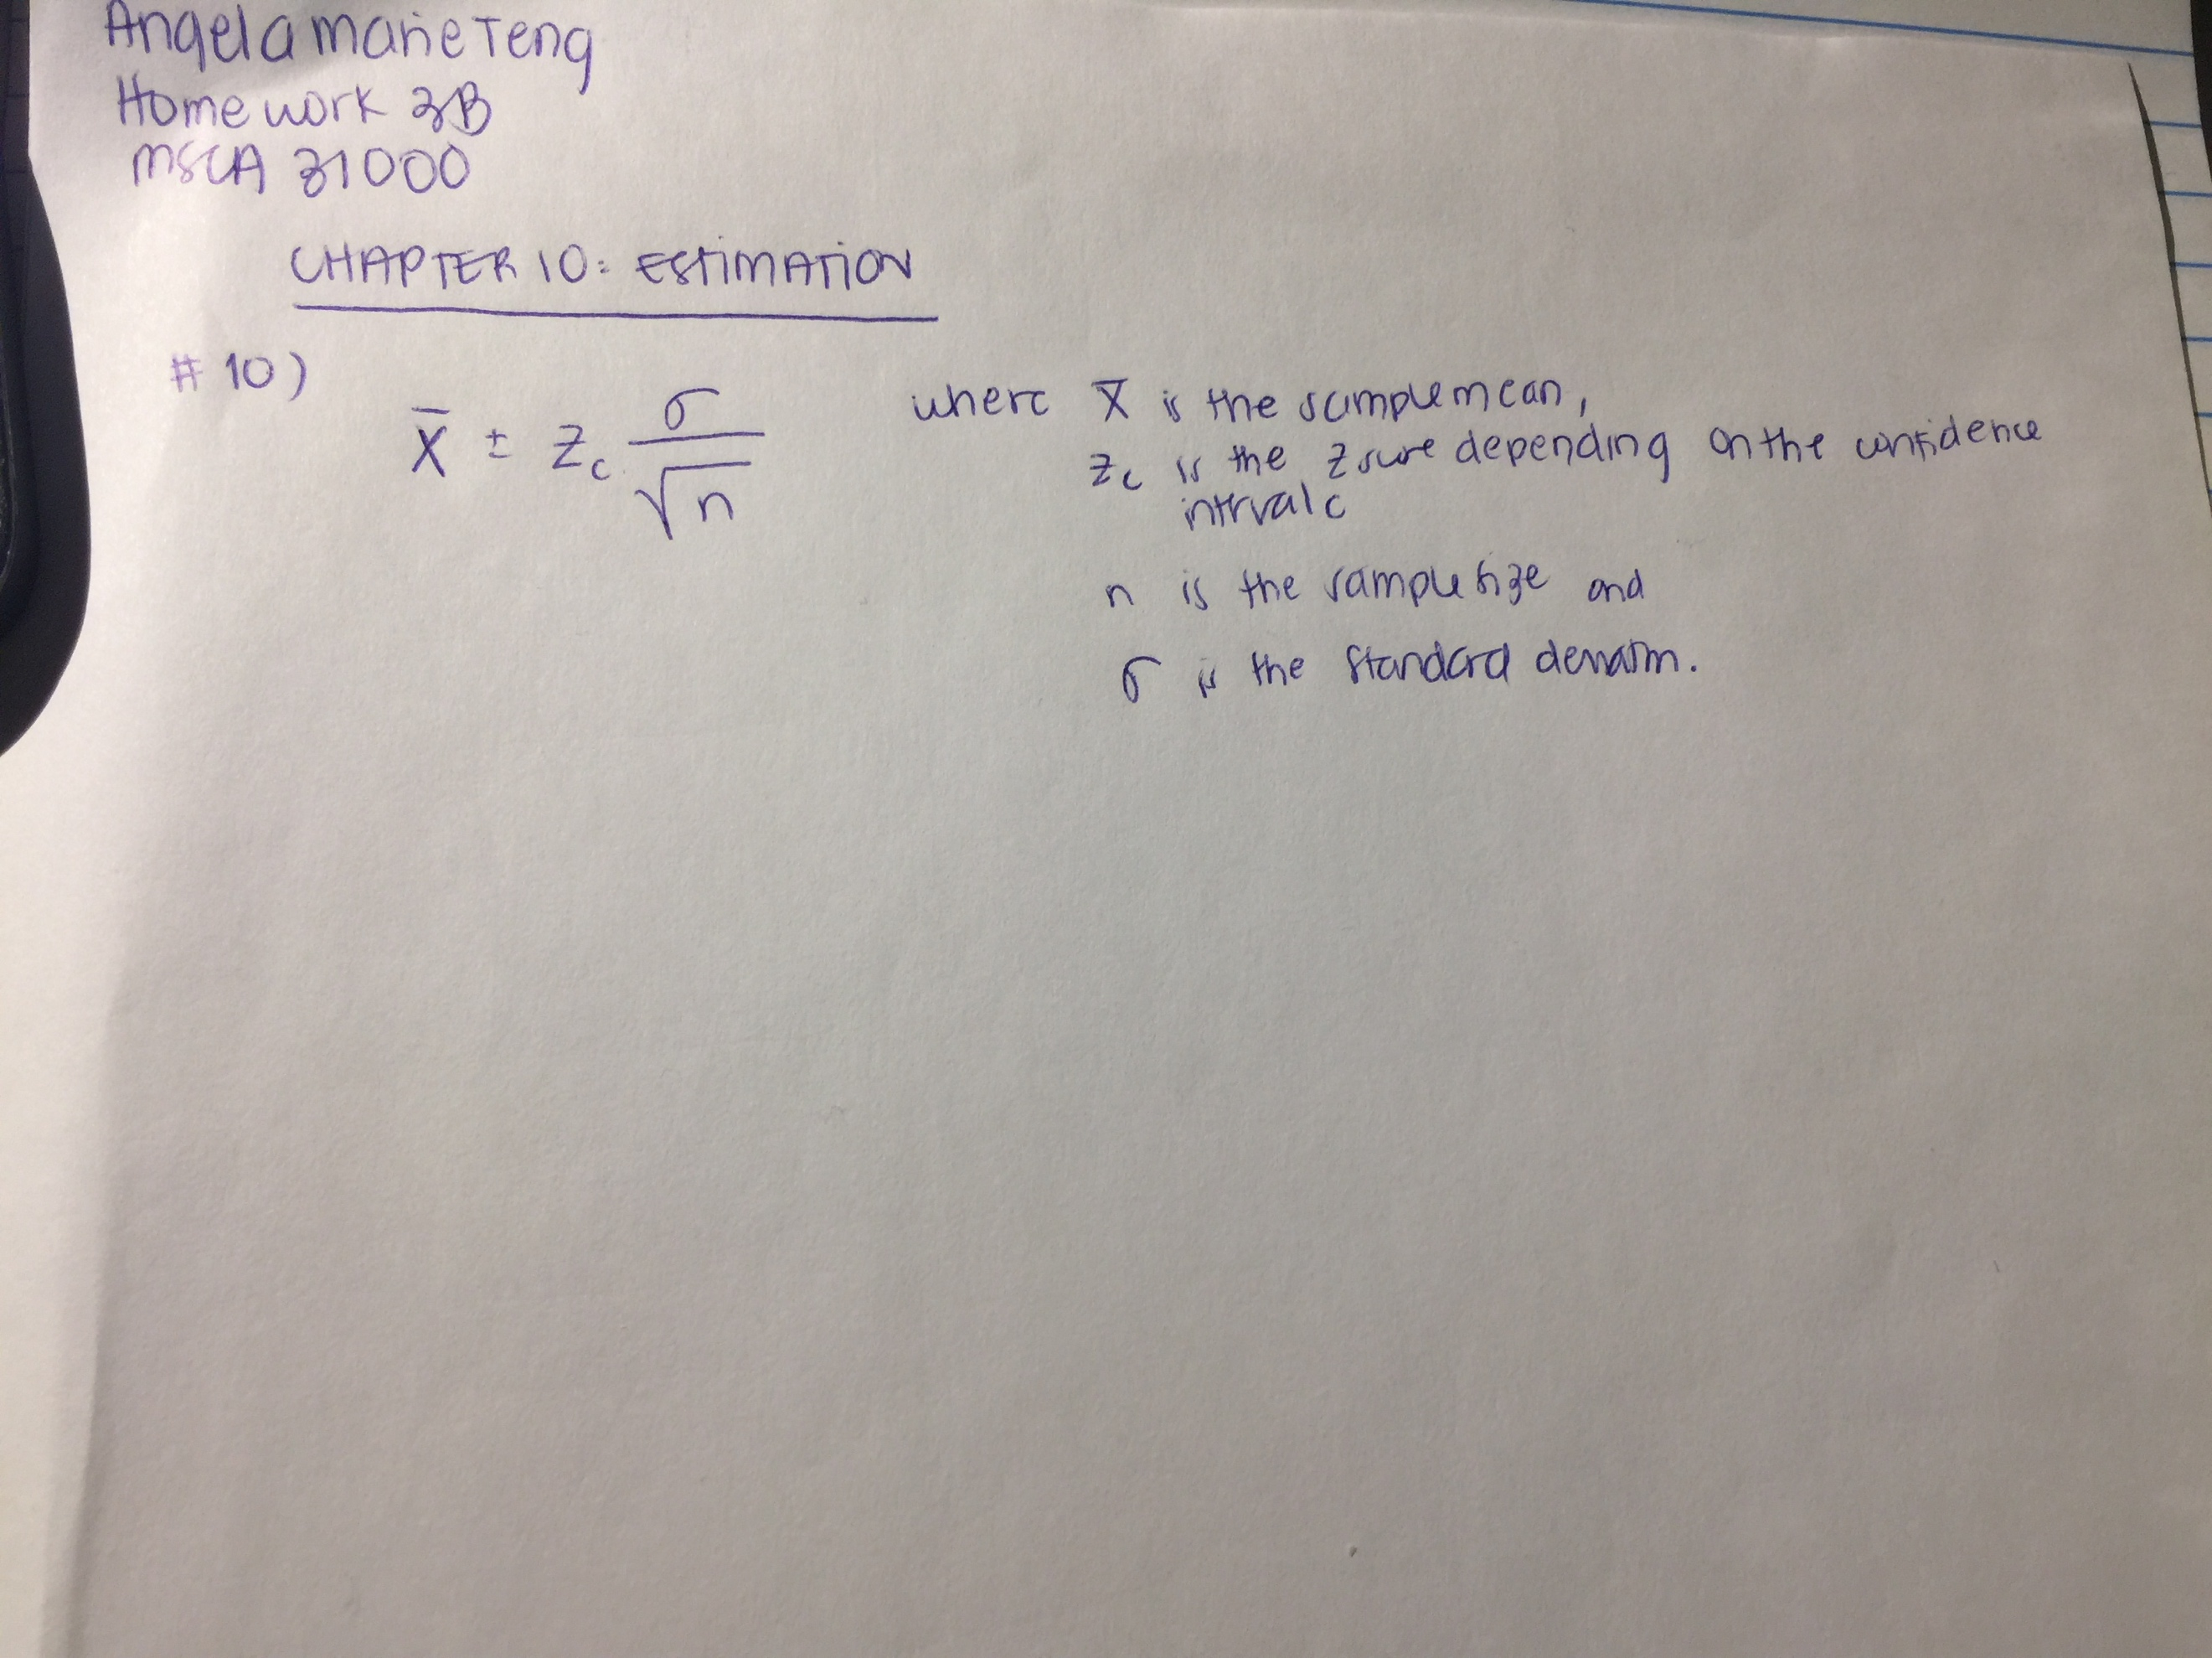 Angela Marie Teng
Homework 3B
MSCA 31000
CHAPTER 10: ESTIMATION
#10)
x̄ ± z_c σ/√n
where x̄ is the sample mean,
z_c is the z score depending on the confidence
intrval c
n is the sample size and
σ is the standard deviation.